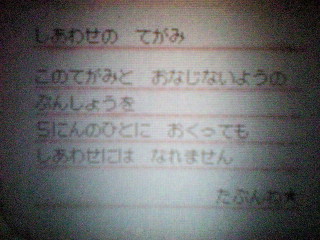 しあわせの　てがみ
このてがみと　おなじないようの
ぶんしょうを
5にんのひとに　おくっても
しあわせには　なれません
たぶんね★